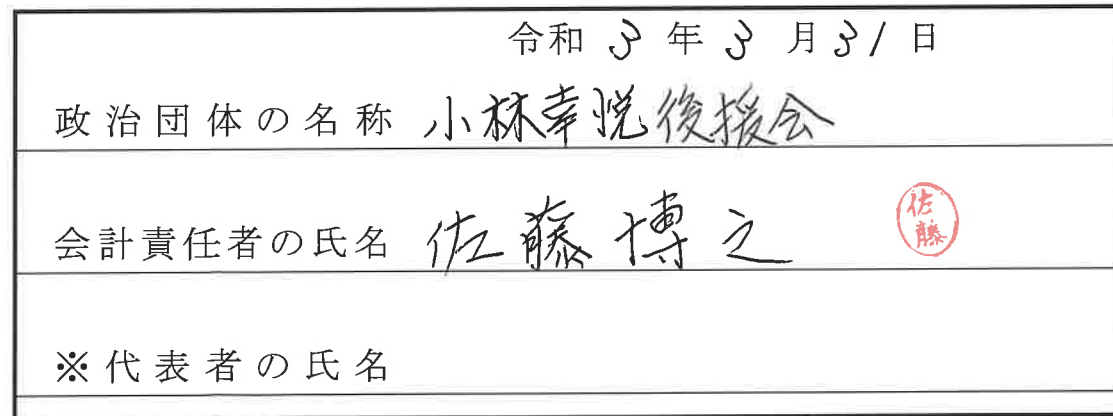 令和 3 年 3 月 31 日
政治団体の名称 小林幸悦後援会
会計責任者の氏名 佐藤博之 佐藤
※代表者の氏名